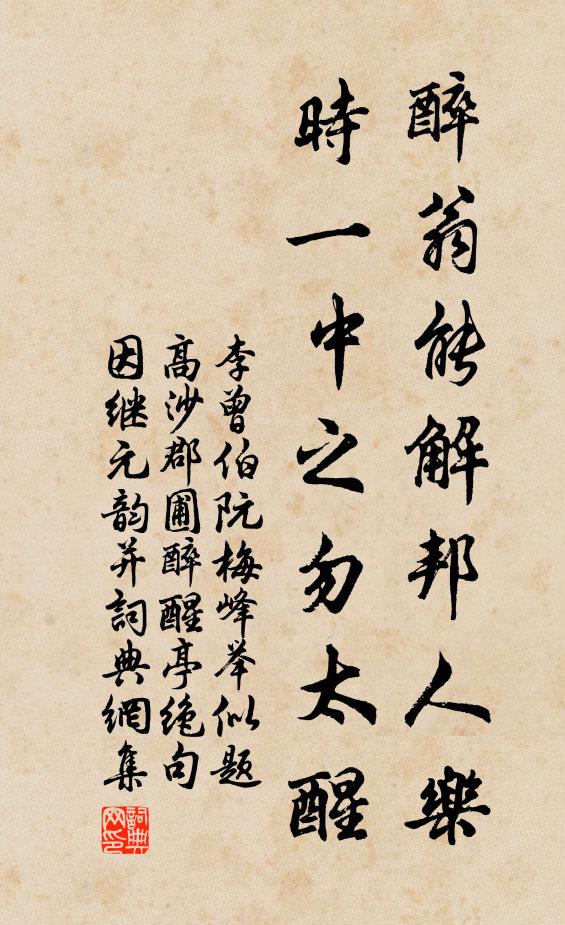 醉翁能解邦人樂
時一中之勿太醒
李曾伯阮梅峰举似题
高沙郡圃醉醒亭绝句
因继元韵并詞典網集
詞典
网印